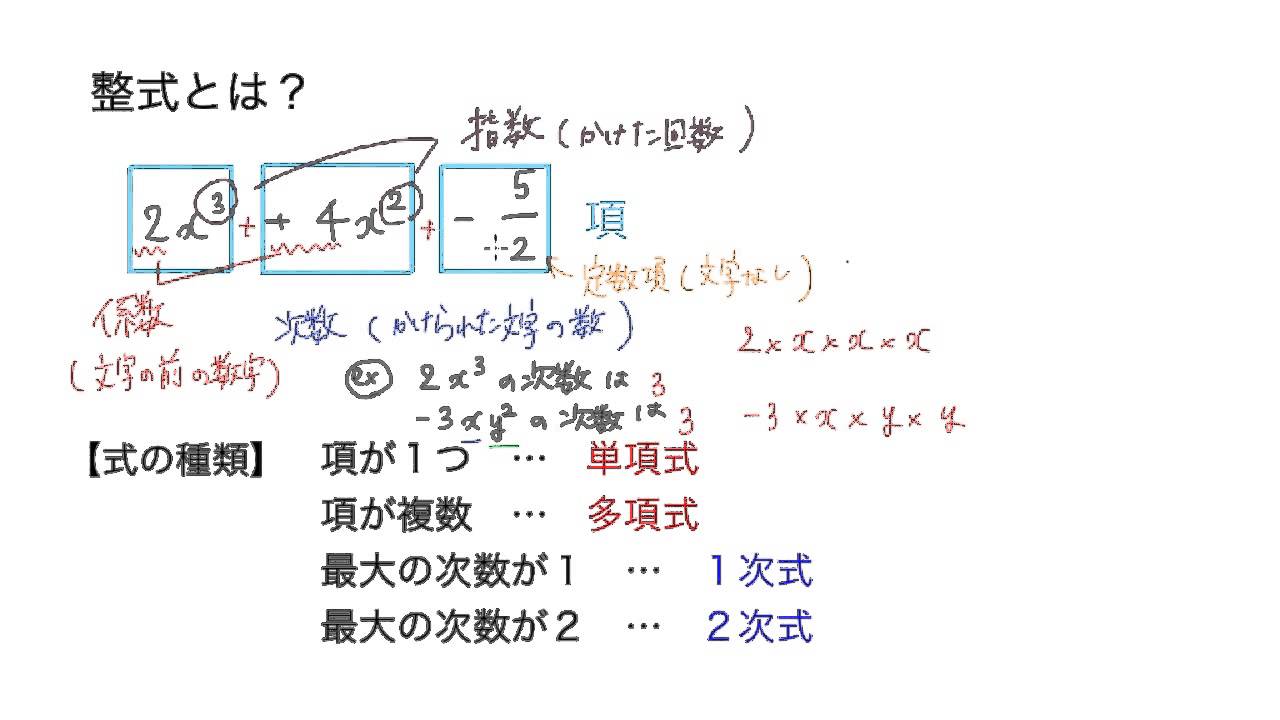 整式とは？
指数（かけた回数）
2x³ + + 4x² + - 5/2 項
定数項（文字なし）
係数
（文字の前の数字）
次数（かけられた文字の数）
2 × x × x × x
ex 2x³の次数は 3
-3xy²の次数は 3 -3 × x × y × y
【式の種類】 項が１つ … 単項式
項が複数 … 多項式
最大の次数が１ … １次式
最大の次数が２ … ２次式